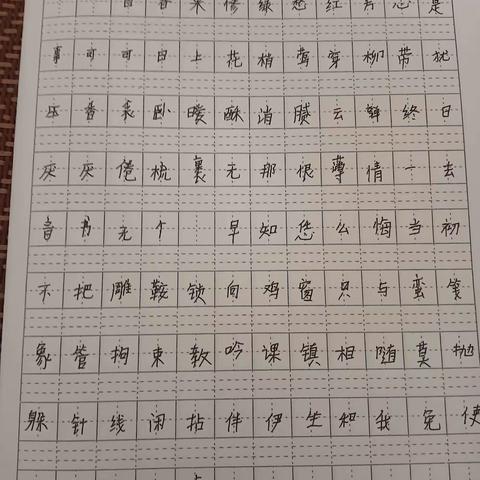 自春来惨绿愁红芳心是
事可可日上花梢莺穿柳带犹
压香衾卧暖酥消腻云亸终日
灰灰倦梳裹无那恨薄情一去
音书无个 早知恁么悔当初
不把雕鞍锁向鸡窗只与蛮笺
象管拘束教吟课镇相随莫抛
躲针线闲拈伴伊坐和我免使